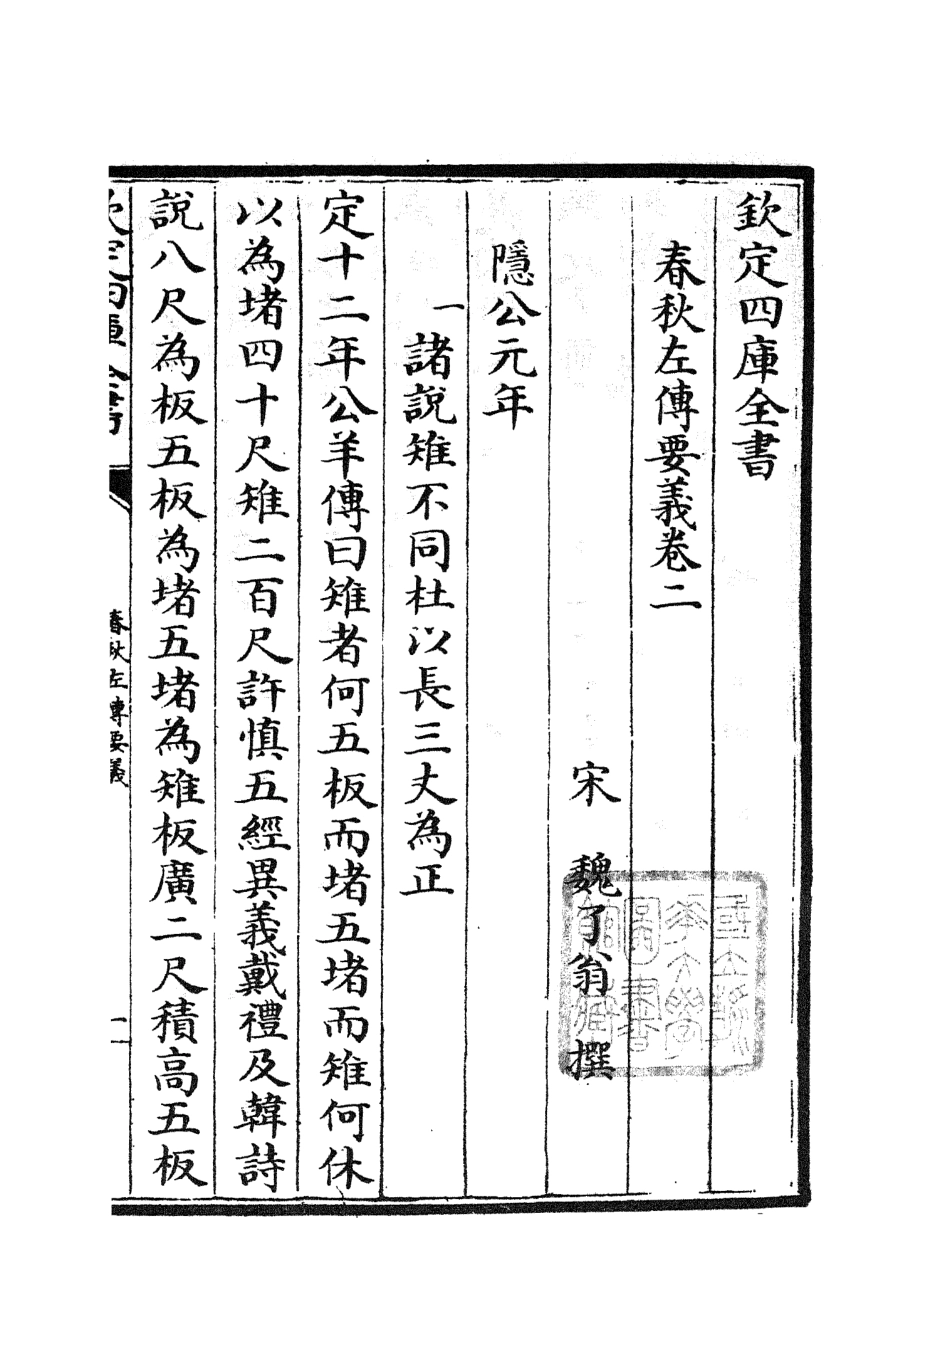 欽定四庫全書
春秋左傳要義卷二
宋　魏了翁　撰
隱公元年
一諸說雉不同杜以長三丈為正
定十二年公羊傳曰雉者何五板而堵五堵而雉何休
以為堵四十尺雉二百尺許慎五經異義戴禮及韓詩
說八尺為板五板為堵五堵為雉板廣二尺積高五板
春秋左傳要義